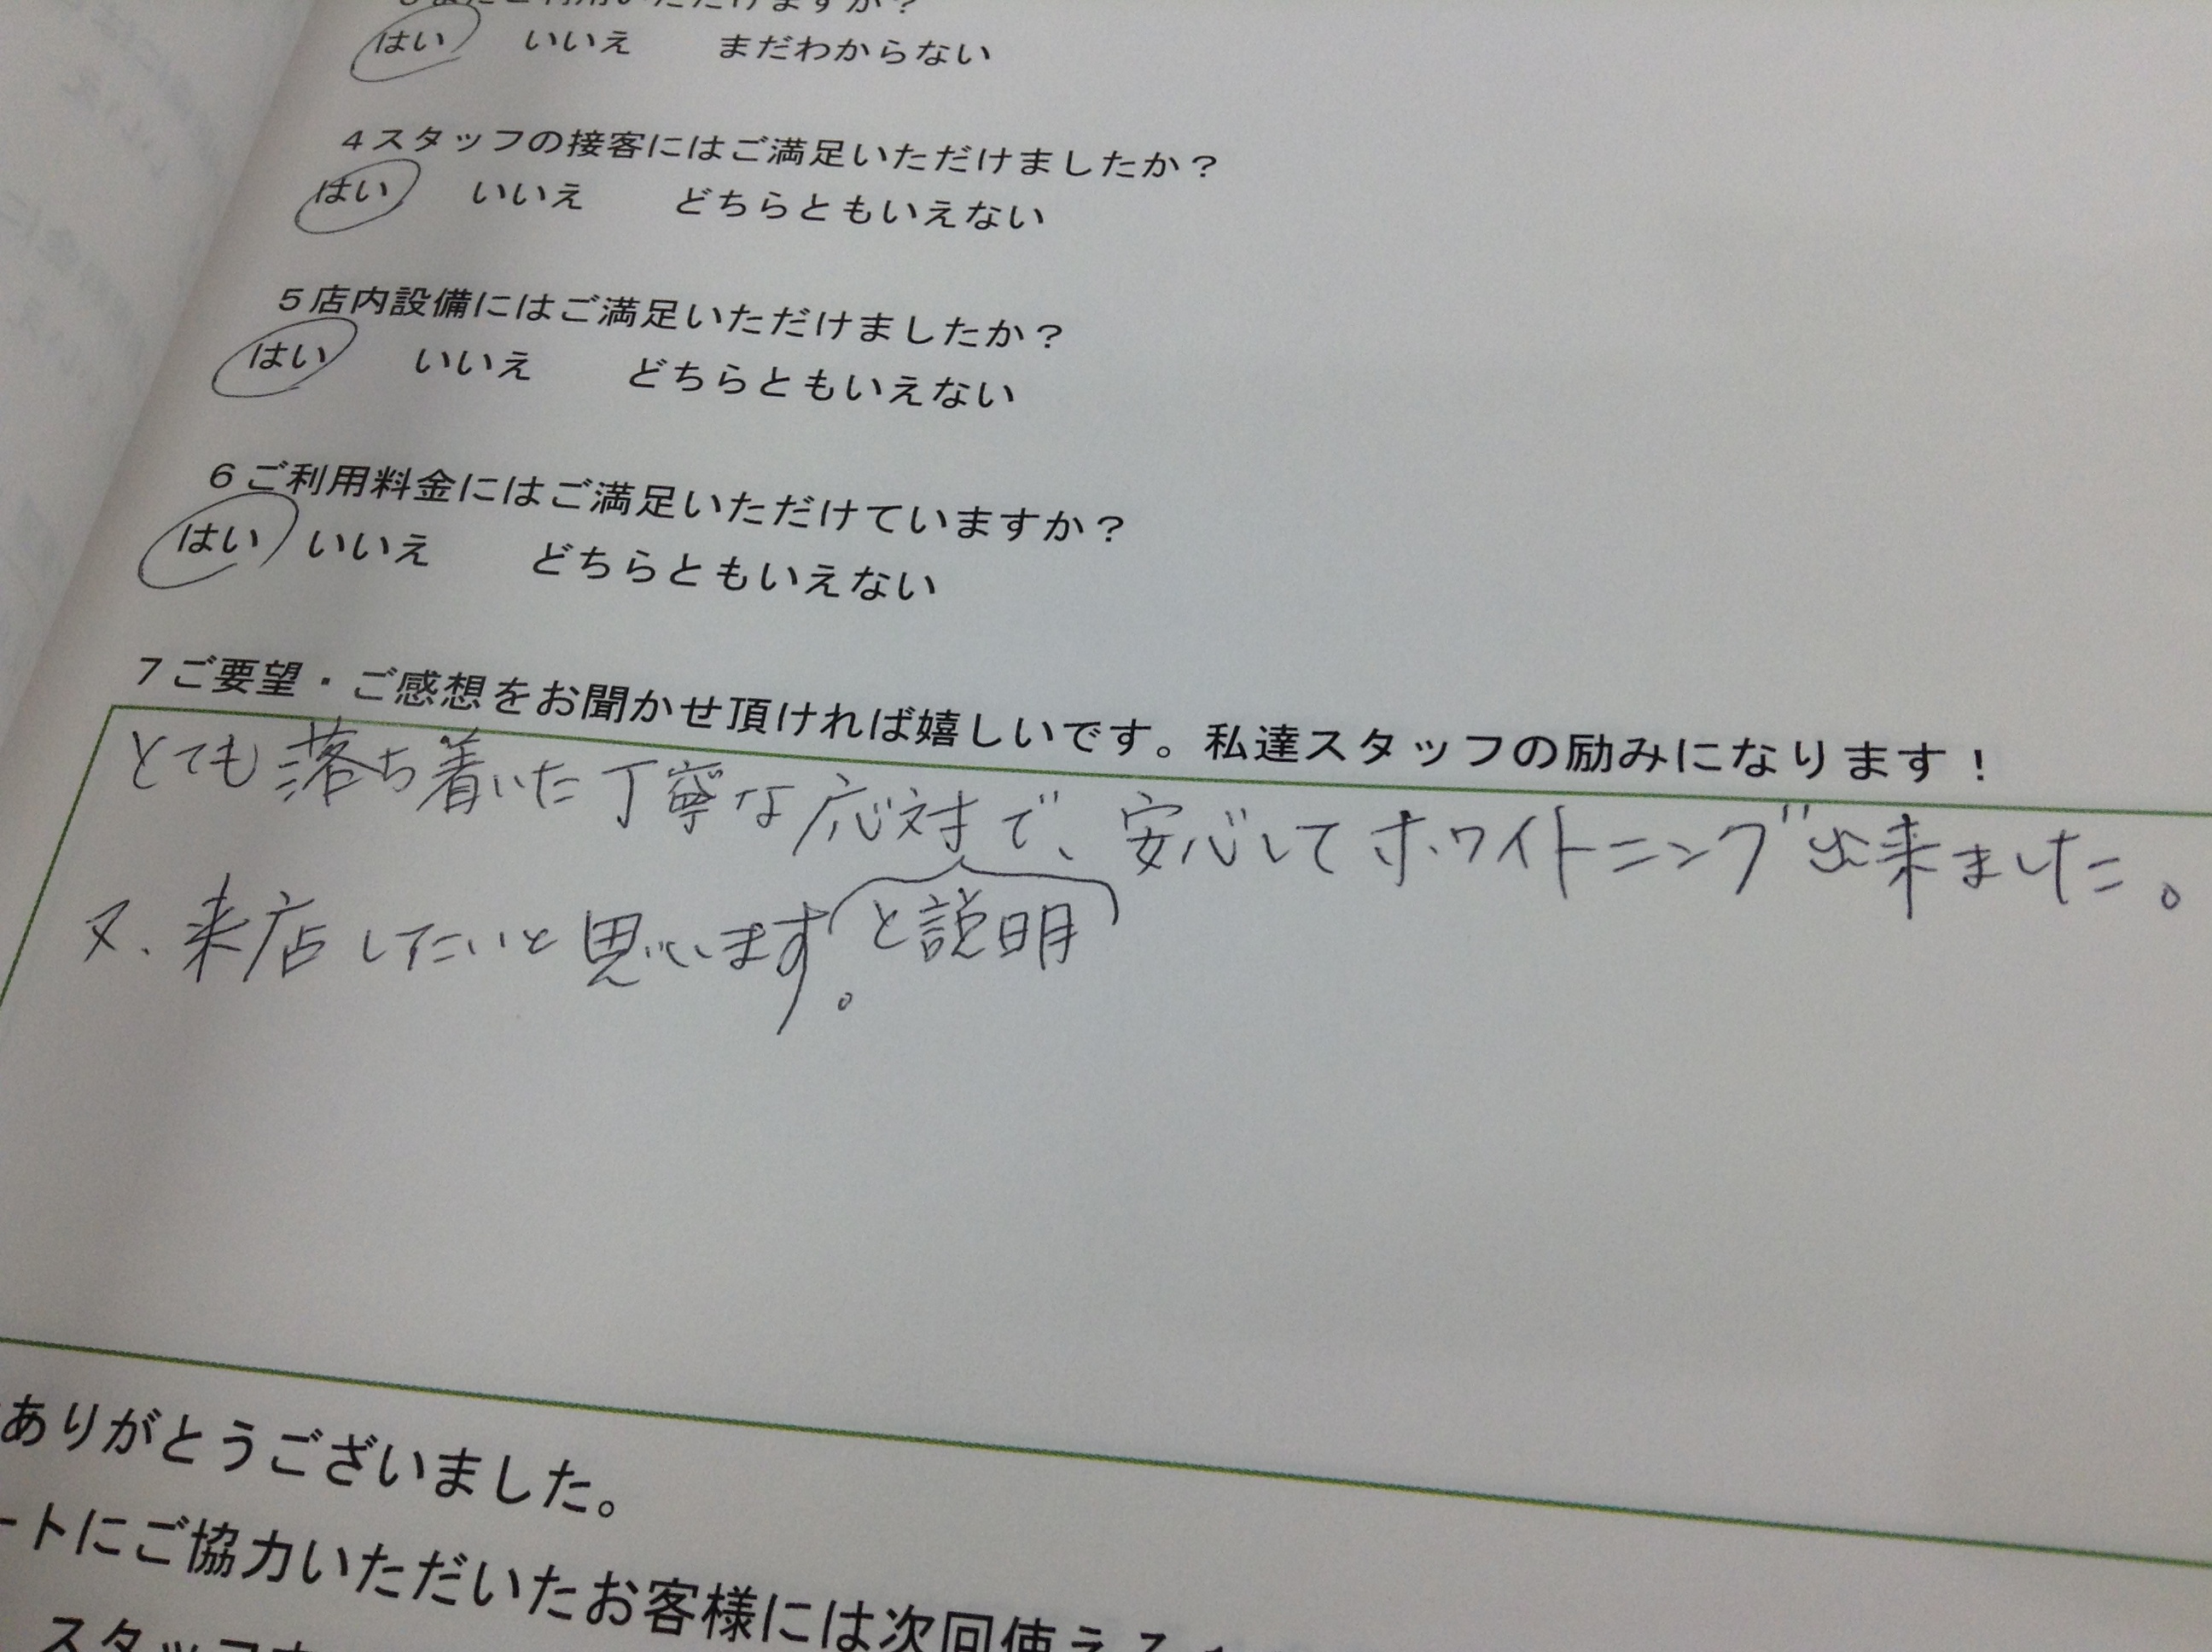 はい いいえ まだわからない
4スタッフの接客にはご満足いただけましたか？
はい いいえ どちらともいえない
5店内設備にはご満足いただけましたか？
はい いいえ どちらともいえない
6ご利用料金にはご満足いただけていますか？
はい いいえ どちらともいえない
7ご要望・ご感想をお聞かせ頂ければ嬉しいです。私達スタッフの励みになります！
とても落ち着いた丁寧な応対で、安心してホワイトニング出来ました。
又、来店したいと思います。 と説明
ありがとうございました。
ートにご協力いただいたお客様には次回使える
スタッフ